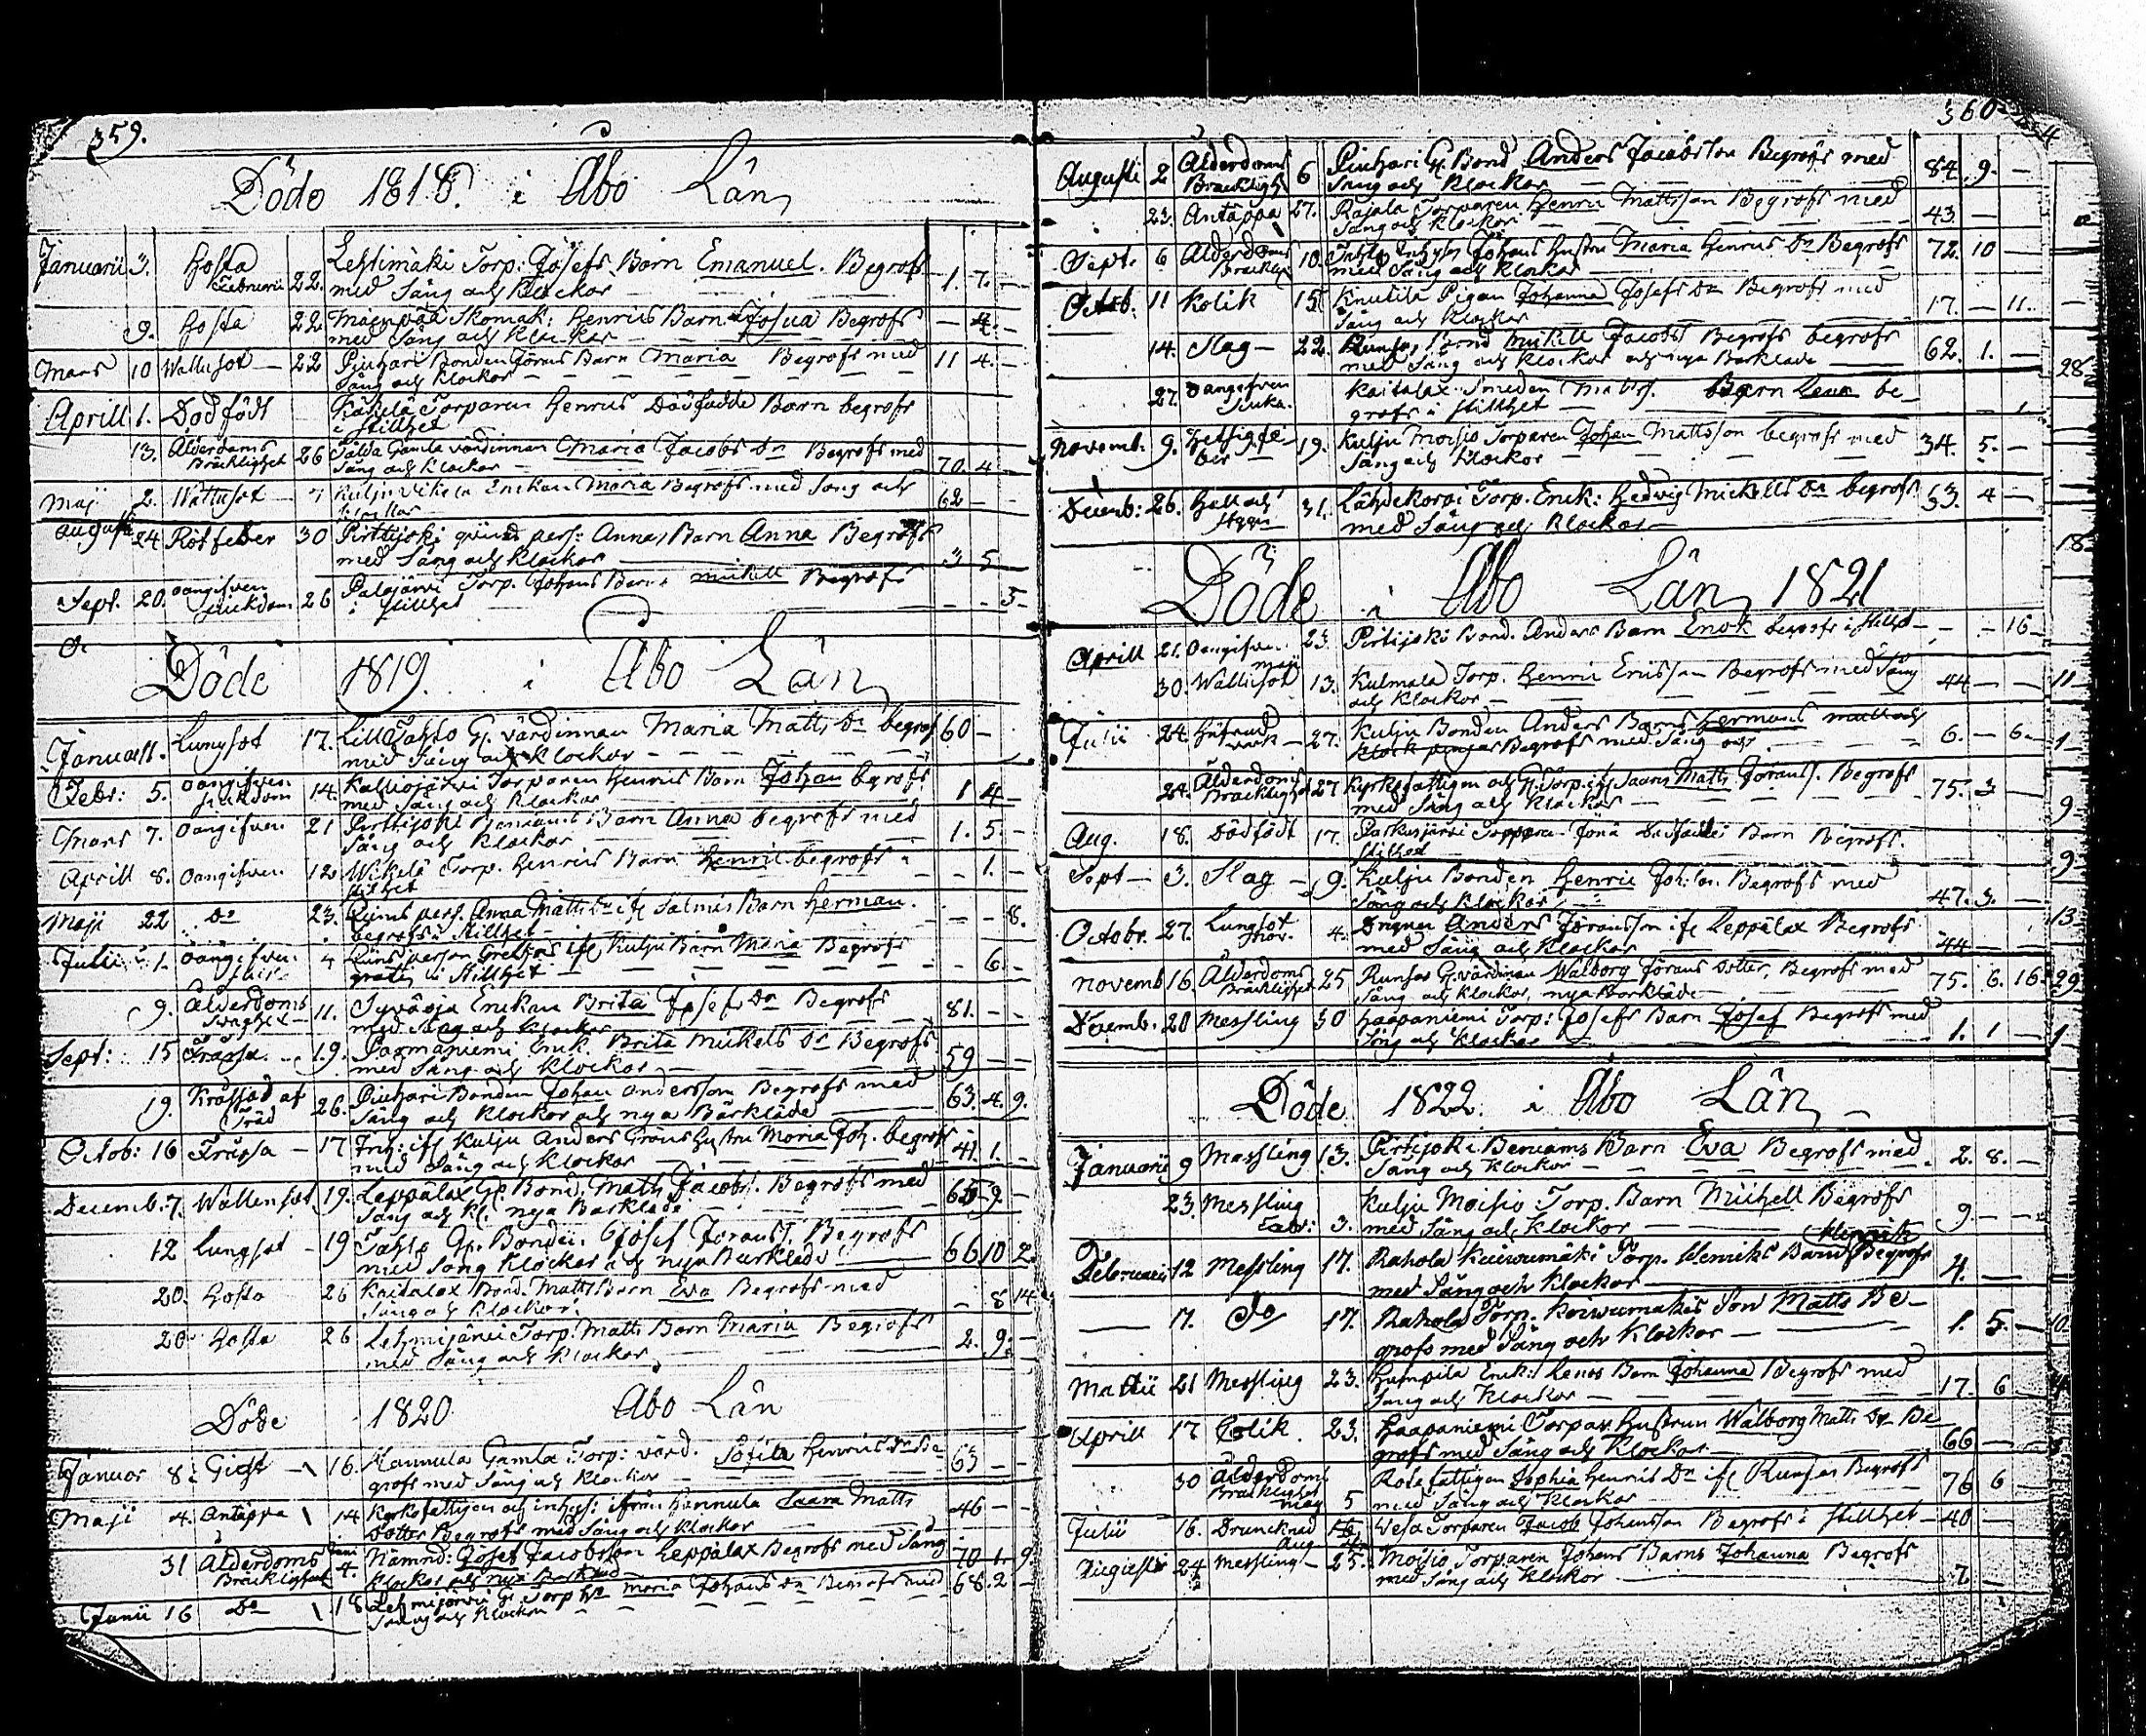 359.
Döde 1818. i Åbo Län
Januarii 3. Hosta 22. Lehtimäki Torp: Josefs Barn Emanuel. Begrofs 1. 7. —
Februarii med Sång och Klockor
9. Hosta 22 Skomak: Henrics Barn Josua Begrofs — 4. —
med Sång och Klockor
Mars 10 Wattusot — 22 Piuhari Bonden Görans Barn Maria Begrofs med 11 4. —
Sång och Klockor
Aprill 1. Dödfödt Torparen Henrics Dödfödde Barn begrofs
i stillhet
13. Ålderdoms 26 Gamla värdinnan Maria Jacobs Dr Begrofs med 70. 4
Bräcklighet Sång och Klockor
Maji 2. Wattusot — 7 Kulju Enkan Maria Begrofs med Sång och 62 —
Klockor
Augusti 24 Rötfeber 30 Pirttijoki qvins pers: Annas Barn Anna Begrofs 3 5
med Sång och Klockor
Sept. 20. Oangifven 26 Palojärvi Torp. Johans Barn Mickell Begrofs — — 5 —
sjuckdom i stillhet
Döde 1819. i Åbo Län
Januarii. Lungsot 17. Lill Tahlo G. värdinnan Maria Matts Dr begrof 60 —
med Sång och Klockor
Febr: 5. Oangifven 14. Kalliojärvi Torparen Henrics Barn Johan begrofs 1 4 —
sjukdom med Sång och Klockor
Mars 7. Oangifven 21 Pirttijoki Beniams Barn Anna begrofs med 1. 5. —
Sång och Klockor
Aprill 8. Oangifven 12 Wikelä Torp. Henrics Barn Henric begrofs i — 1. —
stillhet
Maji 22 Do 23. Qvins pers. Anna Matts Dr if Salmis Barn Herman. — — 8.
begrofs i stillhet
Julii 1. Oangifven 4 Qvins person Gretas if Kulju Barn Maria Begrofs — 6. —
gratis i stillhet
9. Ålderdoms 11. Syväoja Enkan Brita Josefs Dr Begrofs 81. — —
Svaghet med Sång och Klockor
Sept: 15 Frässa 19. Enk. Brita Mickels Dr Begrofs 59 — —
med Sång och Klockor
19. Krossad af 26. Piuhari Bonden Johan Andersson Begrofs med 63. 4. 9.
Träd Sång och Klockor och nya Bårkläde
Octob: 16 Frässa — 17 Inh: if Kulju Anders Görans Hustru Maria Joh. begrofs 41. 1. —
med Sång och Klockor
Decemb. 7. Wattensot 19. Leppälax G. Bond. Matts Jacobs. Begrofs med 65 9 —
Sång och Kl. nya Bårkläde
12 Lungsot — 19 Tahlo G. Bonden Josef Göranss. Begrofs 66 10 2.
med Sång Klockor och nya Bårkläde
20. Hosta 26 Kaitalax Bond. Matts Barn Eva Begrofs med — 8 14
Sång och Klockor.
20 Hosta 26 Lehmijärvi Torp. Matts Barn Maria Begrofs 2. 9. —
med Sång och Klockor
Döde 1820 Åbo Län
Januar 8. Gigt — 16. Hannula Gamla Torp: värd. Sofila Henrics Dr Be 63 —
grofs med Sång och Klockor
Maji 4. Antäppa 14 Kyrkofattigen och inhys: ifrån Hannula Saara Matts 46 —
Dotter Begrofs med Sång och Klockor
31 Ålderdoms Juni 4. Nämnd: Josef Jacobsson Leppälax Begrofs med Sång 70 1. 9
Bräcklighet Klockor och nya Bårkläd
Junii 16 Do 18 Lehmijärvi G. Torp Maria Johans Dr Begrofs med 68. 2 —
Sång och Klockor
360
Augusti 2 Ålderdoms 6 Piuhari G. Bond Anders Jacobsson Begrofs med 84. 9. —
Bräcklight Sång och Klockor
23. Antäppa 27. Rajala Torparen Henric Mattsson Begrofs med 43. —
Sång och Klockor
Sept. 6 Ålderdoms 10. Tahlo Inhys Johans Hustru Maria Henrics Dr Begrofs 72. 10 —
Bräckligh med Sång och Klockor
Octob. 11 Kolik 15 Knutila Pigan Johanna Josefs Dr Begrofs med 17. — 11.
Sång och Klockor
14. Slag — 22. Runsas Bond Mickell Jacobss Begrofs begrofs 62. 1. —
med Sång och Klockor och nya Bårkläde
27. Oangifven Kaitalax Smeden Matts. Barn Lena be-
Sjuka. grofs i stillhet — — 1.
Novemb. 9. Hetsig fe- 19. Kulju Moisio Torparen Johan Mattsson begrofs med 34. 5. —
ber Sång och Klockor
Decemb: 26. Håll och 31. Lähdekorpi Torp. Enk: Hedvig Mickells Dr begrofs 53. 4 —
Styng med Sång och Klockor
Döde i Åbo Län 1821
Aprill 21. Oangifven 23. Pirtijoki Bond. Anders Barn Enok begrofs i stillhet — — 16 —
maji
30. Wattusot 13. Kulmala Torp. Henric Ericsson Begrofs med Sång 44 — —
och Klockor
Julii 24. Hufvud 27. Kulju Bonden Anders Barns Hermans mull och 6. — 6 —
verk klock pengar Begrofs med Sång och
24. Ålderdoms 27 Kyrkofattigen och G. Torp. if Saaris Matts Görans S. Begrofs 75. 3 —
Bräcklighet med Sång och Klockor
Aug. 18. Dödfödt 17. Parkusjärvi Torppare Barn Begrofs.
stilhet
Sept — 3. Slag — 9. Kulju Bonden Henric Begrofs med 47. 3. —
Sång och Klockor
Octobr. 27. Lungsot 4. Drengen Anders Göransson if Leppälax Begrofs 44 — —
nov. med Sång och Klockor
Novemb 16. Ålderdoms 25 Runsas G. värdinan Walborg Görans Dotter, Begrofs med 75. 6. 16.
Bräcklighet Sång och Klockor, nya Bårkläde
Decemb. 20 Messling 30 Haapaniemi Torp: Josefs Barn Josef Begrofs med 1. 1 —
Sång och Klockor
Döde 1822. i Åbo Län
Januarii 9 Messling 13. Pirtijoki Beniams Barn Eva Begrofs med 2. 8. —
Sång och Klockor
23. Messling Kulju Moisio Torp. Barn Michell Begrofs 9. — —
Febr: 3. med Sång och Klockor
Henrik
Februarii 12 Messling 17. Rahola Keiwumäki Torp. Henriks Barn Begrofs 4. —
med Sång och Klockor
17. Do 17. Rahola Torp. Koiwumäkis Son Matts Be- 1. 5. —
grofs med Sång och Klockor
Martii 21 Messling 23. Humpila Enk: Lenas Barn Johanna Begrofs med 17. 6
Sång och Klockor
Aprill 17 Colik. 23. Haapaniemi Torpar Hustrun Walborg Matts Dr Be 66 —
grofs med Sång och Klockor
30 Ålderdoms Rotefattigen Sophia Henrics Dr if Runsas Begrofs 76 6
Bräcklighet maij 5 med Sång och Klockor
Julii 16. Drunknad Wesa Torparen Jacob Johansson Begrofs i stillhet — 40 —
Aug
Augusti 24 Messling — 25. Moisio Torparen Johans Barns Johanna Begrofs 7. —
med Sång och Klockor